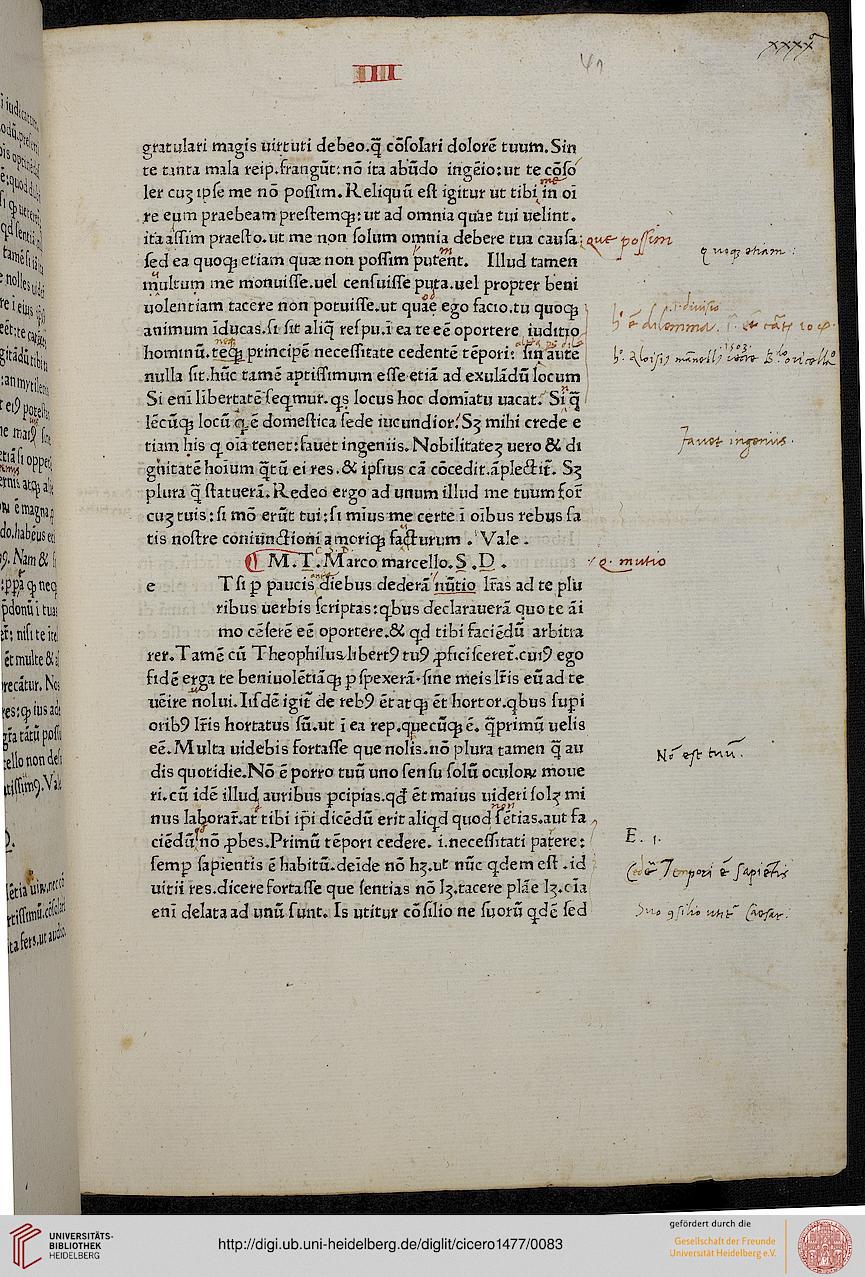 xxxx
IIII
41
gratulari magis uirtuti debeo.q̄ cōsolari dolorē tuum.Sin
te tanta mala reip.frangūt:nō ita abūdo īngēio:ut te cōso
ler cuꝫ ipse me nō possim.Reliquū est igitur ut tibi in oī
me
re eum praebeam prestemqꝫ:ut ad omnia quae tui uelint.
ita assim praesto.ut me non solum omnia debere tua causa:
que possim
sed ea quoqꝫ etiam quæ non possim putent. Illud tamen
quoqꝫ etiam:
multum me monuisse.uel censuisse puta.uel propter beni
uolentiam tacere non potuisse.ut quae ego facio.tu quoqꝫ
animum īducas.si sit aliq̄ respu.ī ea te eē oportere iuditio
hominū.teqꝫ principē necessitate cedentē tēpori: sin aūte
nulla sit.hūc tamē aptissimum esse etiā ad exulādū locum
Si enī libertatē seqmur.qs locus hoc domīatu uacat. Si q̄
lēcūqꝫ locū q ē domestica sede iucundior?Sꝫ mihi crede e
tiam his q oīa tenet:fauet ingeniis.Nobilitateꝫ uero & di
fauet ingeniis.
gnitatē hoīum q̄tū ei res.& ipsius cā cōcedit.āplectit̄. Sꝫ
plura q̄ statuerā.Redeo ergo ad unum illud me tuum for̄
cuꝫ tuis:si mō erūt tui:si mīus me certe ī oībus rebus sa
tis nostre coniunctioni amoriqꝫ facturum . Vale .
M.T.Marco marcello.S.D.
q. mutio
e Tsi p paucis diebus dederā nūtio lr̄as ad te plu
ribus uerbis scriptas:qbus declarauerā quo te āi
mo cēserē eē oportere.& qd tibi faciēdū arbitra
rer.Tamē cū Theophilus libertꝰ tuꝰ ꝓficisceret̄.cuiꝰ ego
fidē erga te beniuolētiāqꝫ pspexerā.sine meis lr̄is eū ad te
uēire nolui.Iisdē igit̄ de rebꝰ ēt atqꝫ ēt hortor.qbus supi
oribꝰ lr̄is hortatus sū.ut ī ea rep.quecūqꝫ ē. q̄primū uelis
eē.Multa uidebis fortasse que nolis.nō plura tamen q̄ au
Nō est tuū.
dis quotidie.Nō ē porro tuū uno sensu solū oculoꝝ moue
ri.cū idē illud auribus pcipias.qd ēt maius uideri solꝫ mi
nus laborar̄.at tibi ip̄i dicēdū erit aliqd quod sētias.aut fa
non
ciēdū nō ꝓbes.Primū tēpori cedere. i.necessitati parere:
E. 1.
semp sapientis ē habitū.deīde nō hꝫ.ut nūc qdem est .id
Cedē Tempori ē sapiētis
uitii res.dicere fortasse que sentias nō lꝫ.tacere plāe lꝫ.oīa
enī delata ad unū sunt. Is utitur cōsilio ne suorū qdē sed
suo ꝯsilio utit̄ Caesar.
UNIVERSITÄTS-
BIBLIOTHEK
HEIDELBERG
http://digi.ub.uni-heidelberg.de/diglit/cicero1477/0083
gefördert durch die
Gesellschaft der Freunde
Universität Heidelberg e.V.